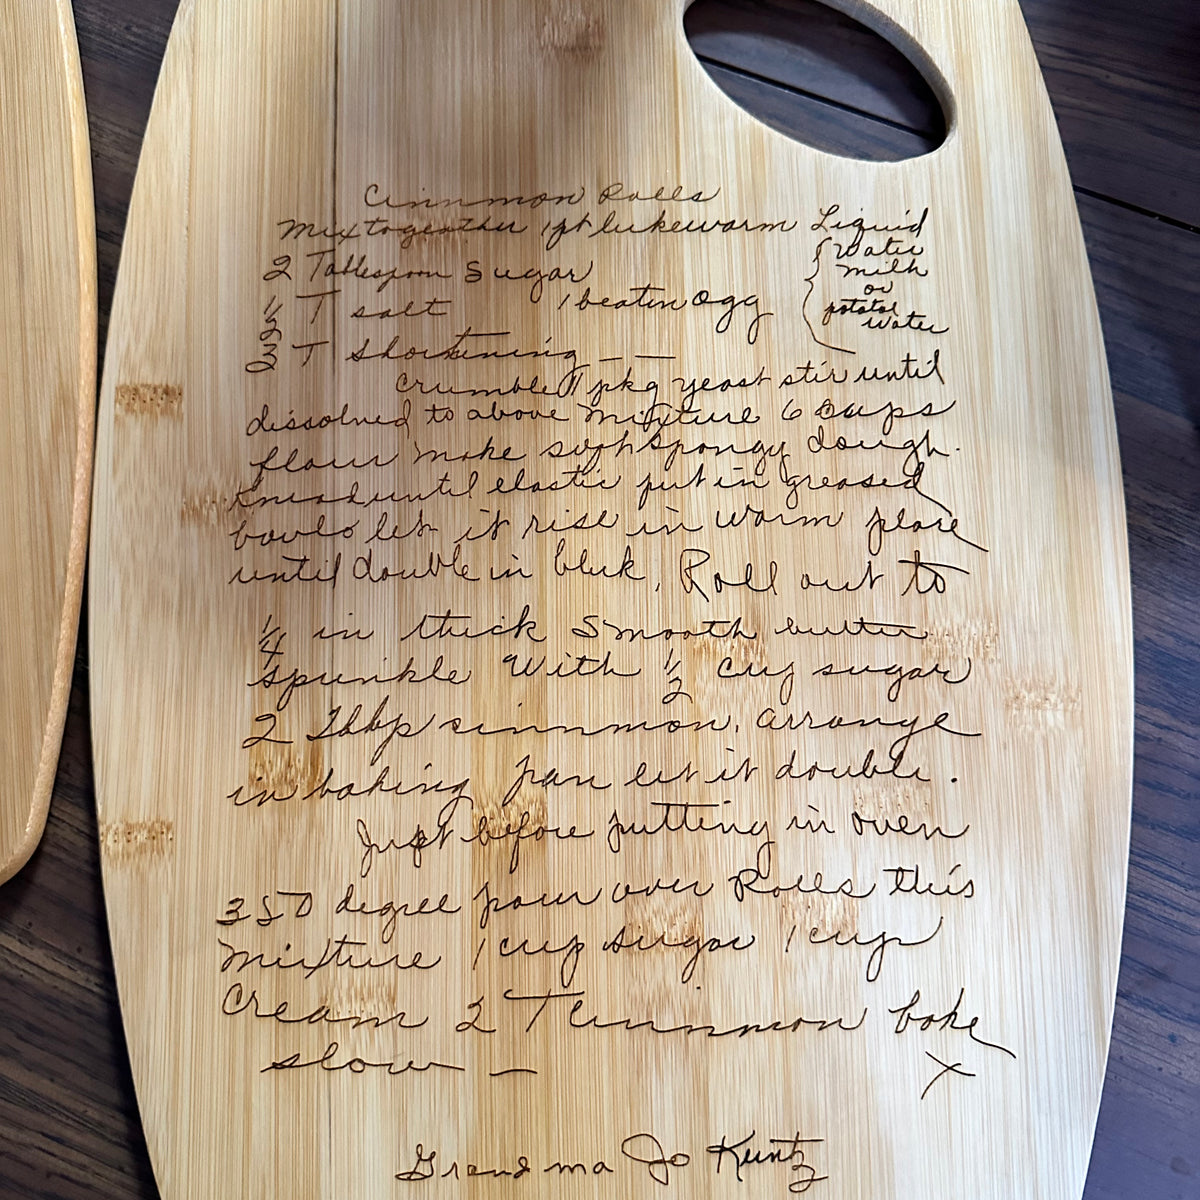 Cinnmon Rolls
Mix togeather 1 pt lukewarm Liquid
{ Water
milk
or
potatoe
water
2 Tablespoon Sugar
1/2 T salt 1 beaten Egg
3 T Shortening — —
crumble 1 pkg yeast stir until
dissolved to above Mixture 6 cups
flour make soft spongy dough.
knead until elastic put in greased
bowls let it rise in warm place
until double in bluk, Roll out to
1/4 in thick Smooth butter
sprinkle with 1/2 cup sugar
2 Tbbp cinnmon, arrange
in baking pan let it double.
Just before putting in oven
350 degree pour over Rolls this
Mixture 1 cup sugar 1 cup
Cream 2 T Cinnmon bake
slow — X
Grandma Jo Kuntz